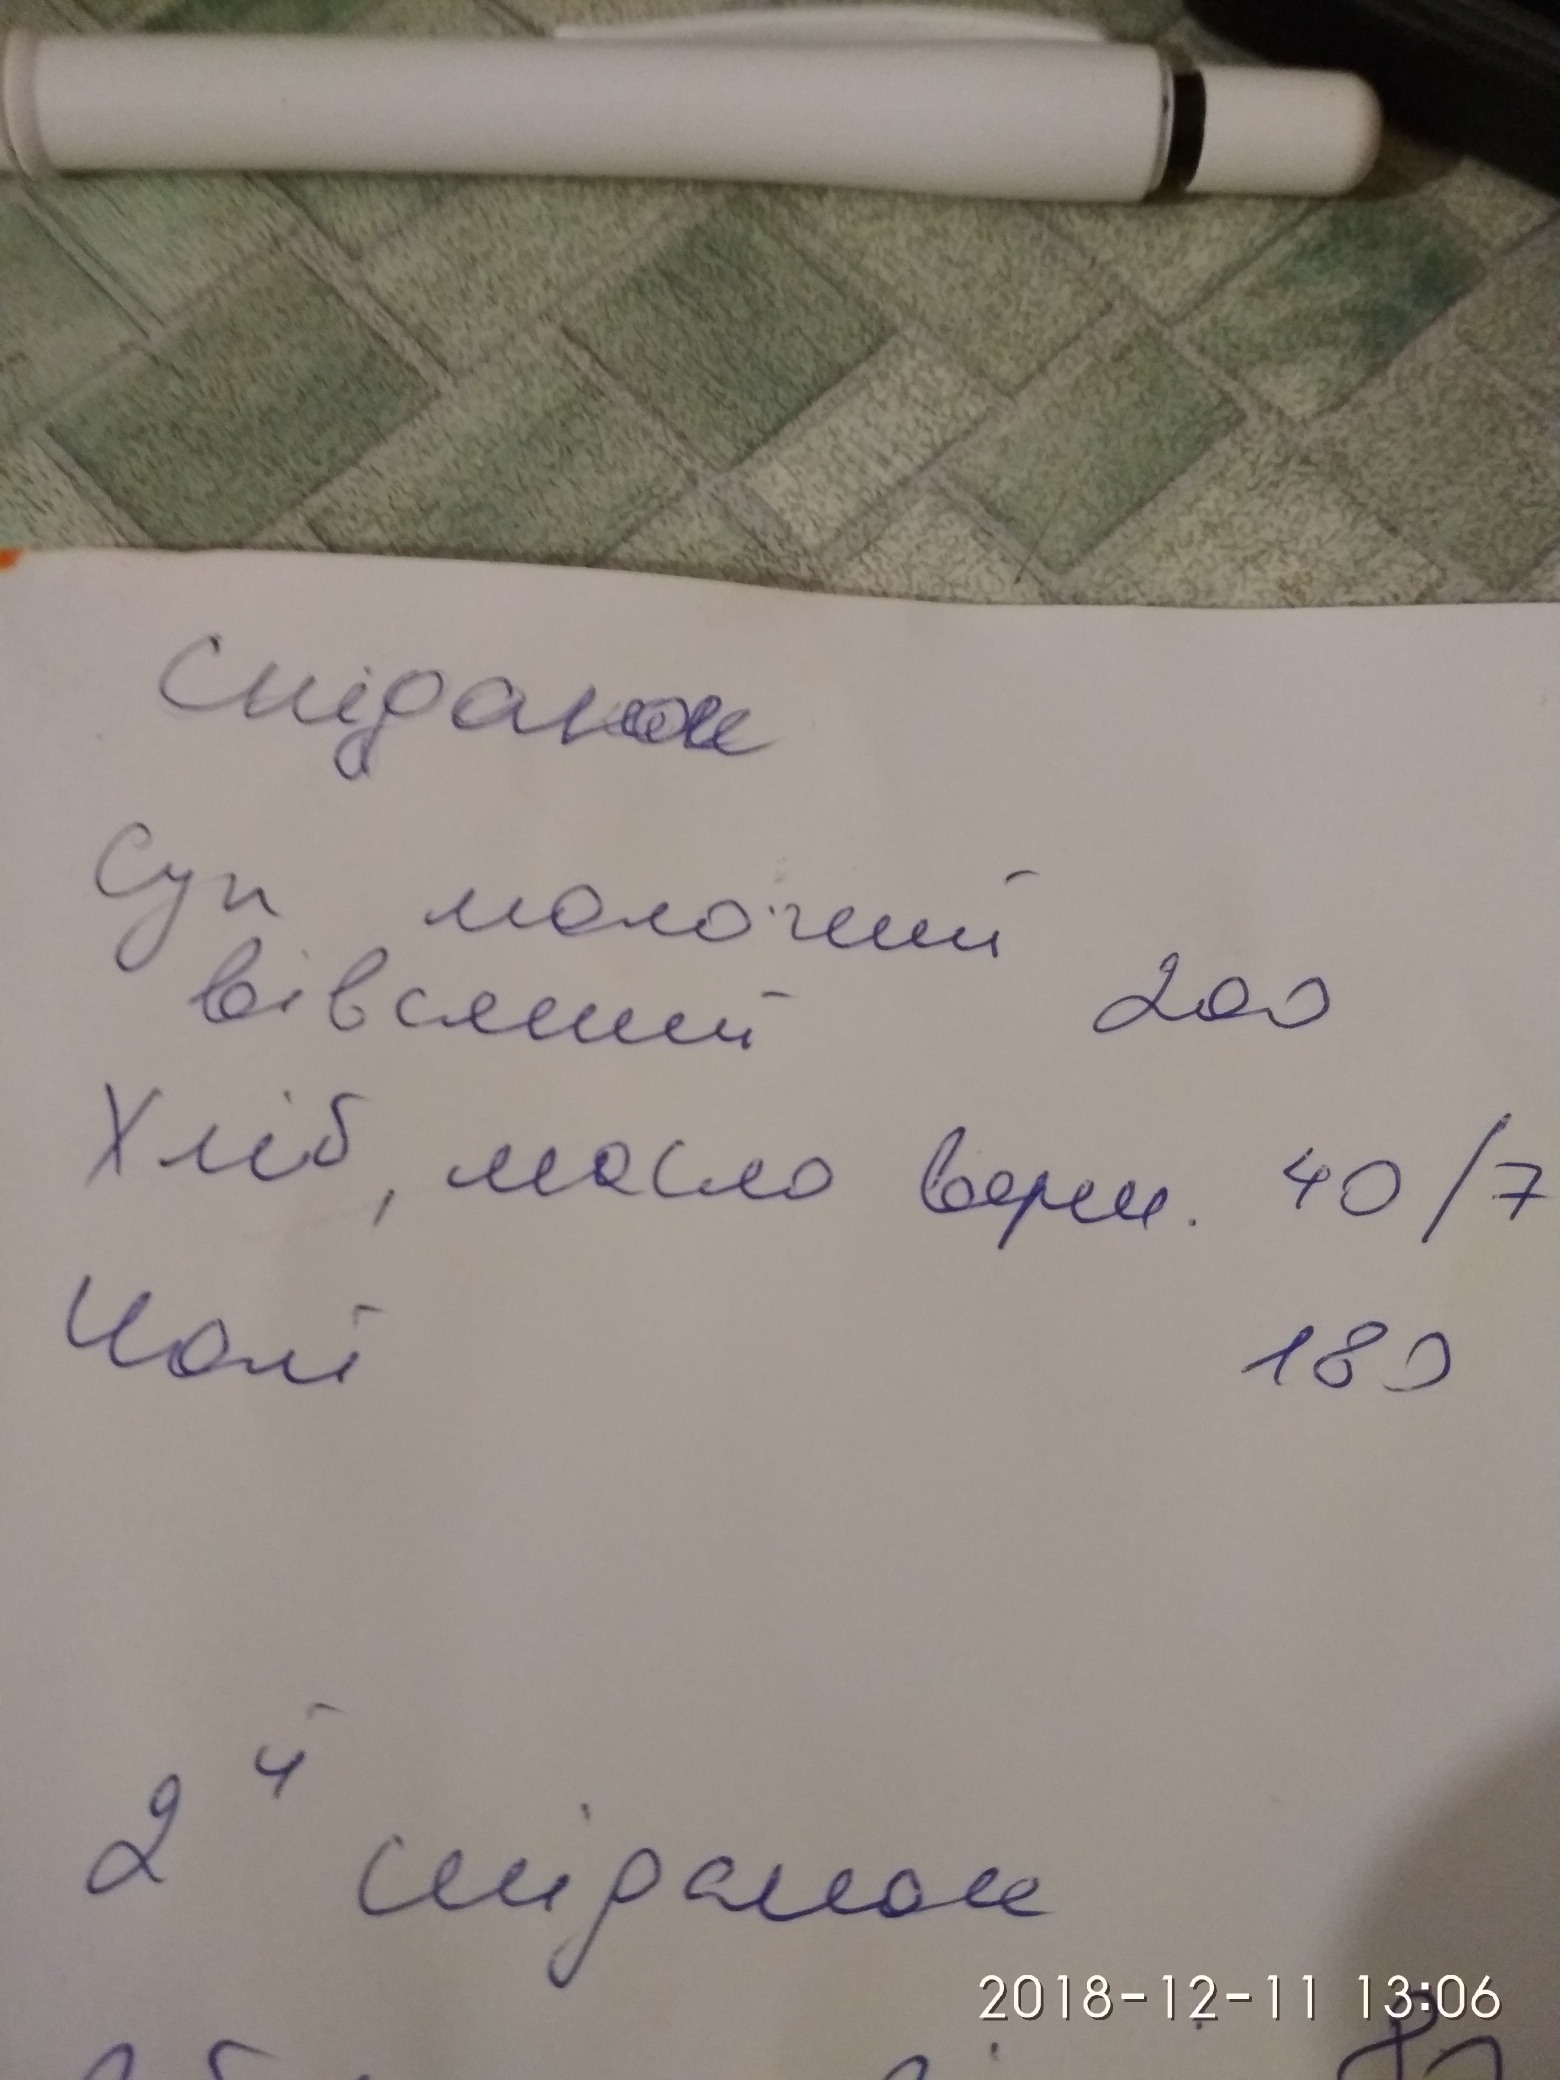 Сніданок
Суп молочний
вівсяний 200
Хліб, масло верш. 40/7
Чай 180
2й сніданок
2018-12-11 13:06